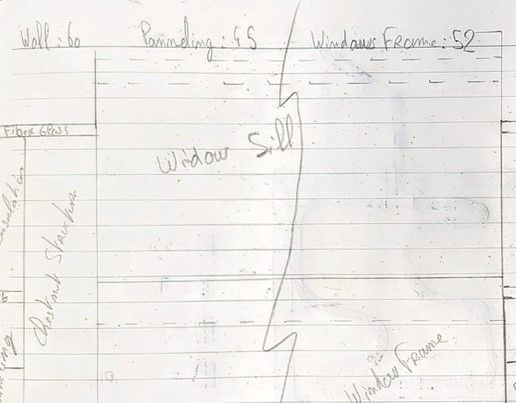 Wall : 60   Panneling : 45   Windows Frame : 52
Window Sill
Fiber Glass
Chestnut Structure
Window Frame